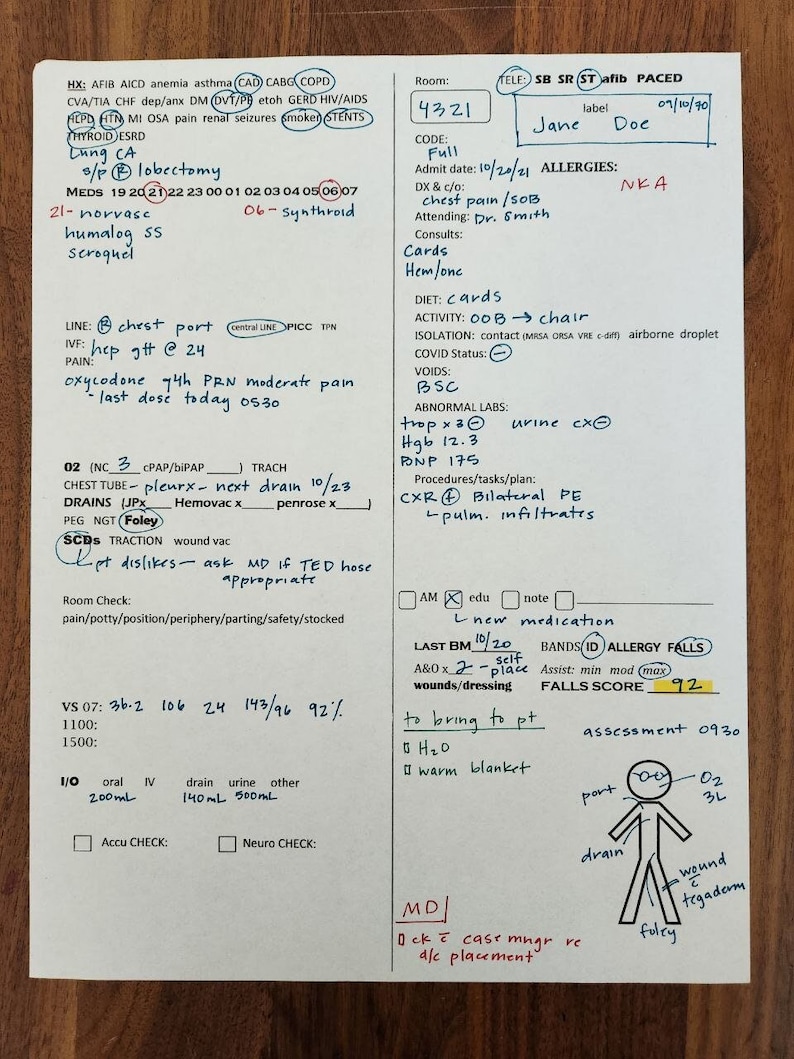 HX: AFIB AICD anemia asthma CAD CABG COPD
CVA/TIA CHF dep/anx DM DVT/PE etoh GERD HIV/AIDS
HLPD HTN MI OSA pain renal seizures smoker STENTS
THYROID ESRD
Lung CA
s/p R lobectomy
MEDS 19 20 21 22 23 00 01 02 03 04 05 06 07
21- norvasc 06- synthroid
humalog SS
seroquel
LINE: R chest port central LINE PICC TPN
IVF: hep gtt @ 24
PAIN:
oxycodone q4h PRN moderate pain
- last dose today 0530
02 (NC 3 cPAP/biPAP _____) TRACH
CHEST TUBE - pleurx - next drain 10/23
DRAINS (JPx____ Hemovac x_____ penrose x_____)
PEG NGT Foley
SCDs TRACTION wound vac
pt dislikes - ask MD if TED hose
appropriate
Room Check:
pain/potty/position/periphery/parting/safety/stocked
VS 07: 36.2 106 24 143/96 92%
1100:
1500:
I/O oral IV drain urine other
200mL 140mL 500mL
Accu CHECK: Neuro CHECK:
Room: TELE: SB SR ST afib PACED
4321
label 09/10/70
Jane Doe
CODE:
Full
Admit date: 10/20/21 ALLERGIES:
NKA
DX & c/o:
chest pain/SOB
Attending: Dr. Smith
Consults:
Cards
Hem/onc
DIET: cards
ACTIVITY: OOB → chair
ISOLATION: contact (MRSA ORSA VRE c-diff) airborne droplet
COVID Status: -
VOIDS:
BSC
ABNORMAL LABS:
trop x 3 - urine cx -
Hgb 12.3
BNP 175
Procedures/tasks/plan:
CXR + Bilateral PE
pulm. infiltrates
AM X edu note
new medication
LAST BM 10/20 BANDS ID ALLERGY FALLS
A&O x 2 - self place Assist: min mod max
wounds/dressing FALLS SCORE 92
to bring to pt
H2O
warm blanket
assessment 0930
port
O2
3L
drain
wound
c̄
tegaderm
foley
MD
ck c̄ case mngr re
d/c placement